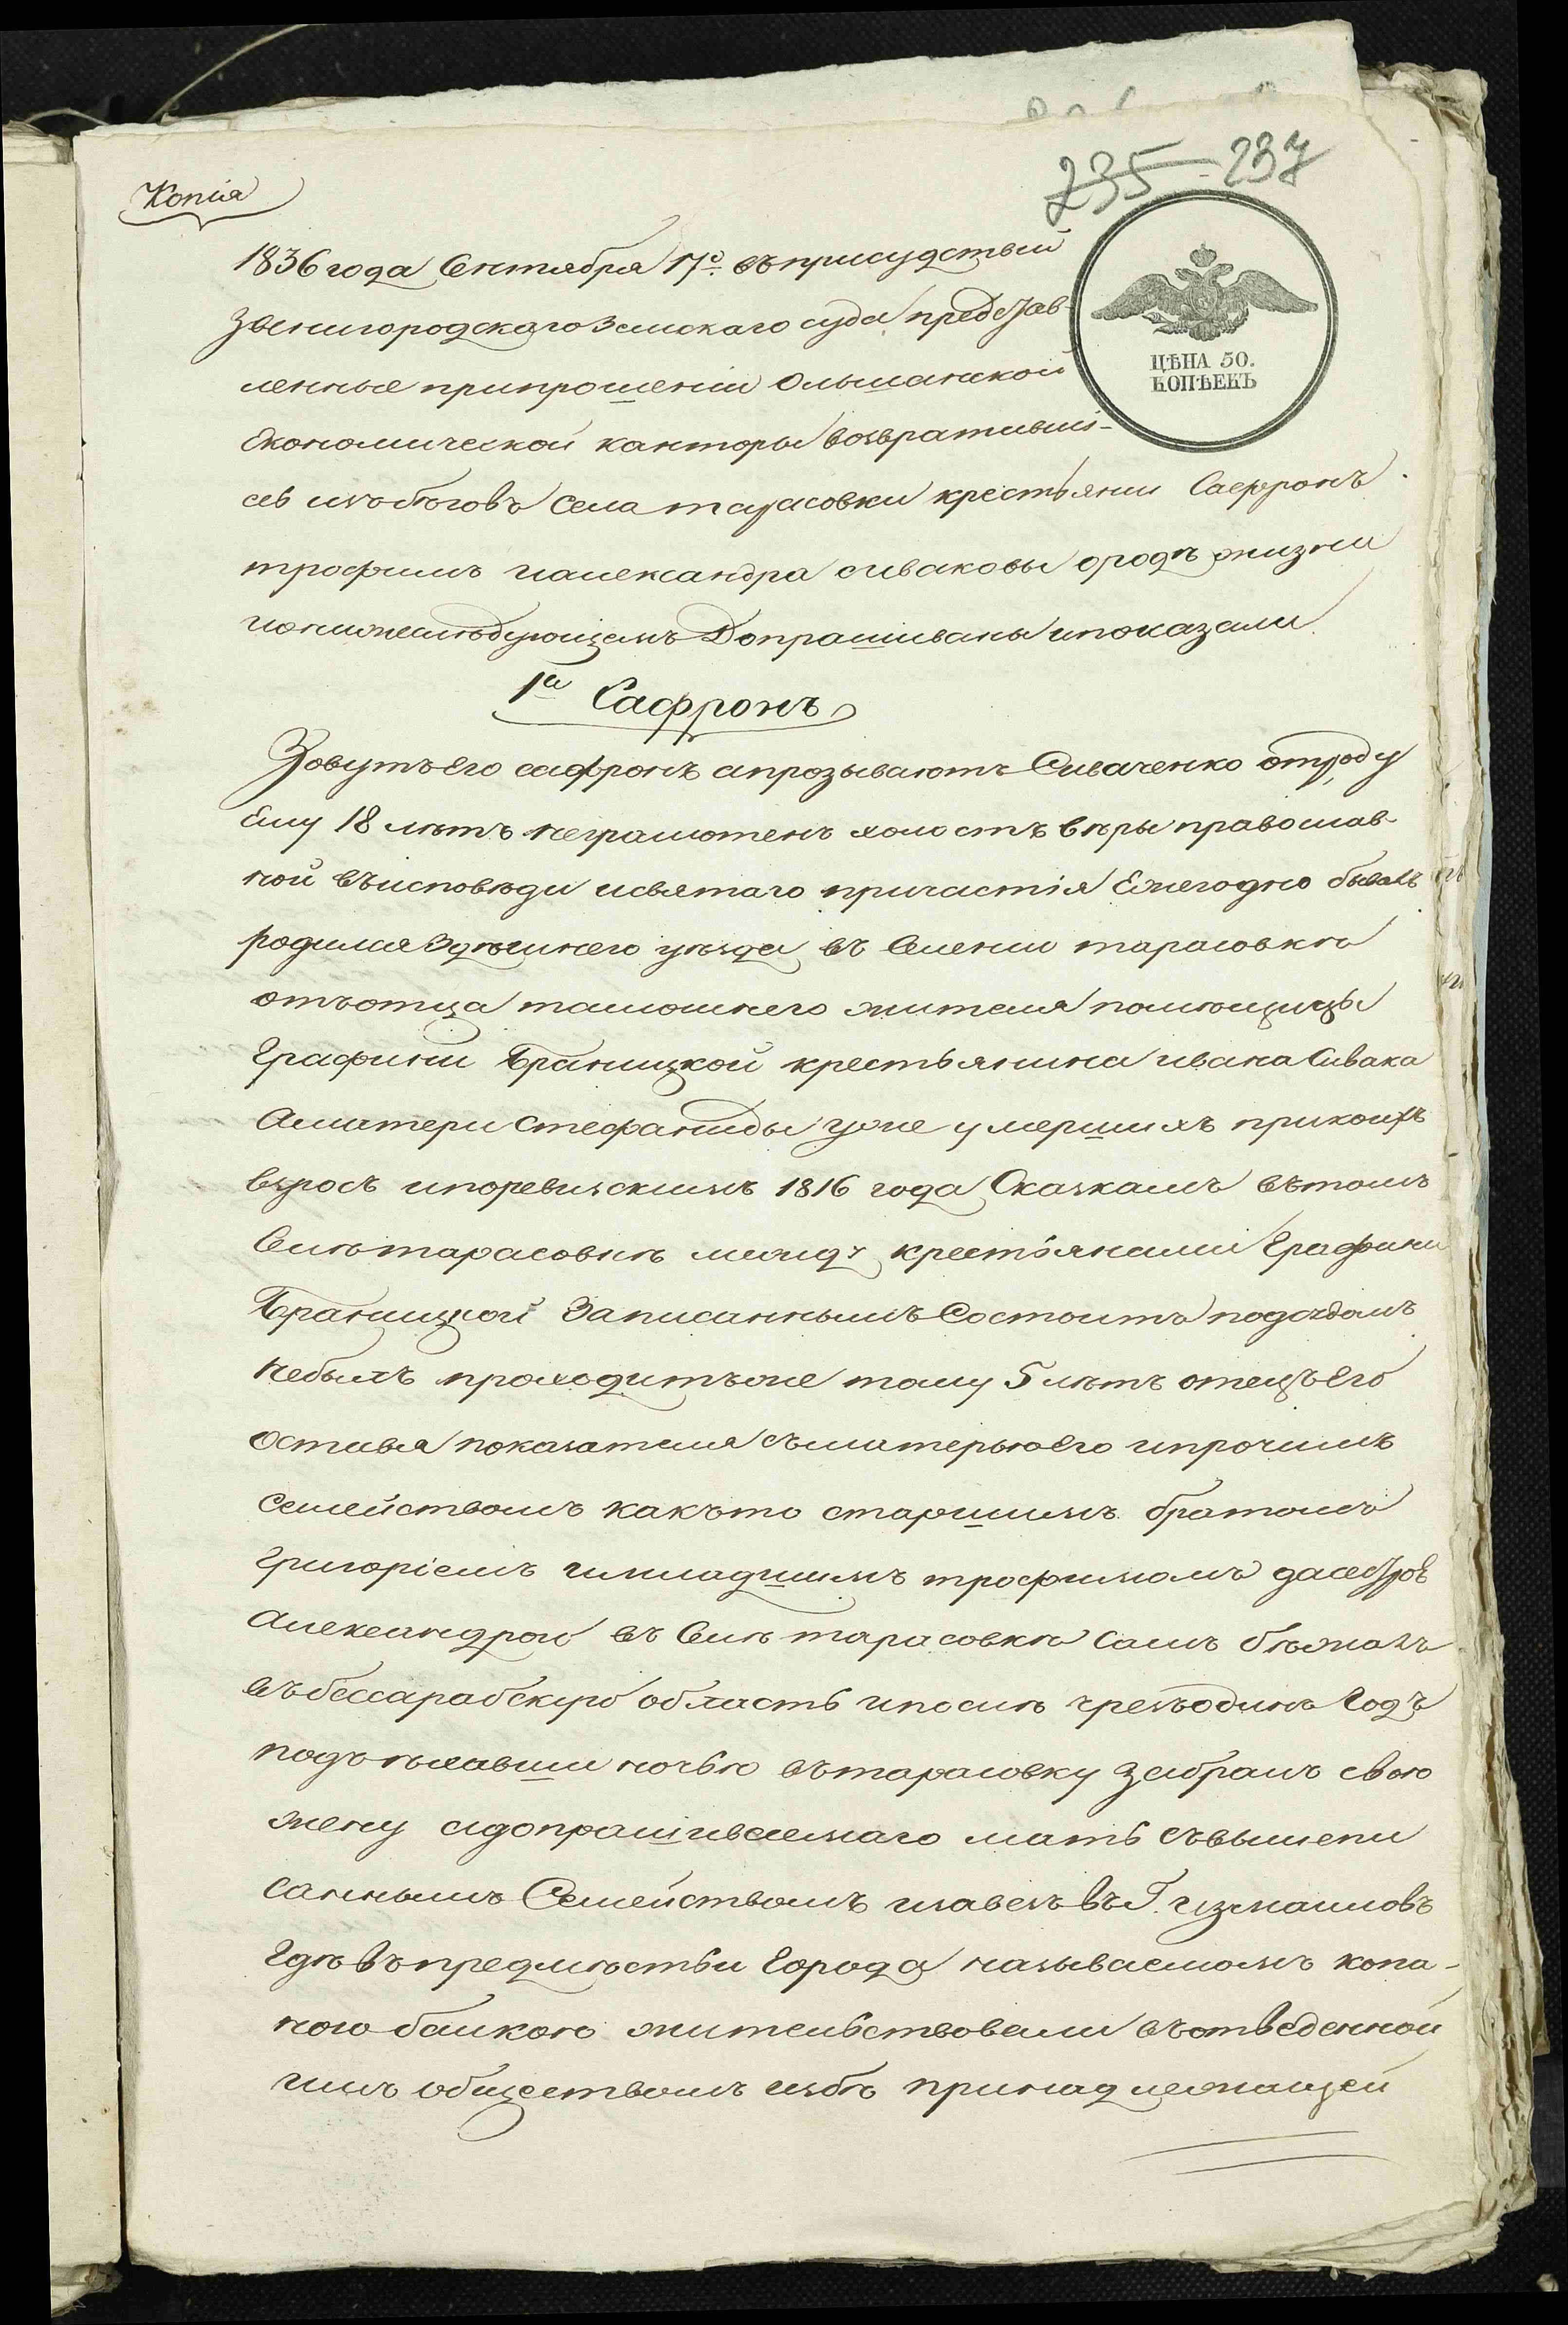 235-237
Копія
ЦѢНА 50.
КОПѢЕКЪ
1836 года Сентября 17е. въ присудствыи
Звенигородскаго Земскаго суда представ-
ленные припрошеніи Ольшанской
Економической канторы возвративші-
сь изъ бѣговъ Села тарасовки крестьяни Сафронъ
трофимъ иалександра сиваковы ородѣ жизни
ионижеслѣдующемъ Допрашиваны ипоказали
1а Сафронъ
Зовутъ его сафронъ апрозываютъ Сиваченко отроду
Ему 18 лѣтъ неграмотенъ холостъ вѣры православ-
ной въисповѣди исвятаго причастія Ежегодно бывалъ
родился Здѣшнего уѣзда въ Селении тарасовки
отъотца тамошнего жителя помѣщицы
Графини Браницкой крестьянина ивана Сивака
Аматери Стефаниды уже умершихъ прикоихъ
взросъ ипоревизскимъ 1816 года Сказкамъ въ томъ
Селѣ тарасовкѣ между крестьянами Графини
Браницкой Записаннымъ Состоитъ подсудомъ
небылъ проходитъ же тому 5 лѣтъ отецъ Его
Оставя показателя съматерью Его ипрочимъ
Семействомъ какъто старшимъ братомъ
Григоріемъ имладшимъ трофимомъ дасестрою
Александрой въ Селѣ тарасовкѣ Самъ бѣжалъ
въбессарабскую область ипослѣ чрезъодинъ Годъ
подъѣхавши ночью въ тарасовку забралъ свою
жену адопрашиваемаго мать съвышепи
саннымъ Семействомъ изавезъ въ Г. измаиловъ
Гдѣ въ предмѣстьи Города называемомъ копа-
ною балкою жительствовали въ отведенной
имъ обществомъ избѣ принадлежащей